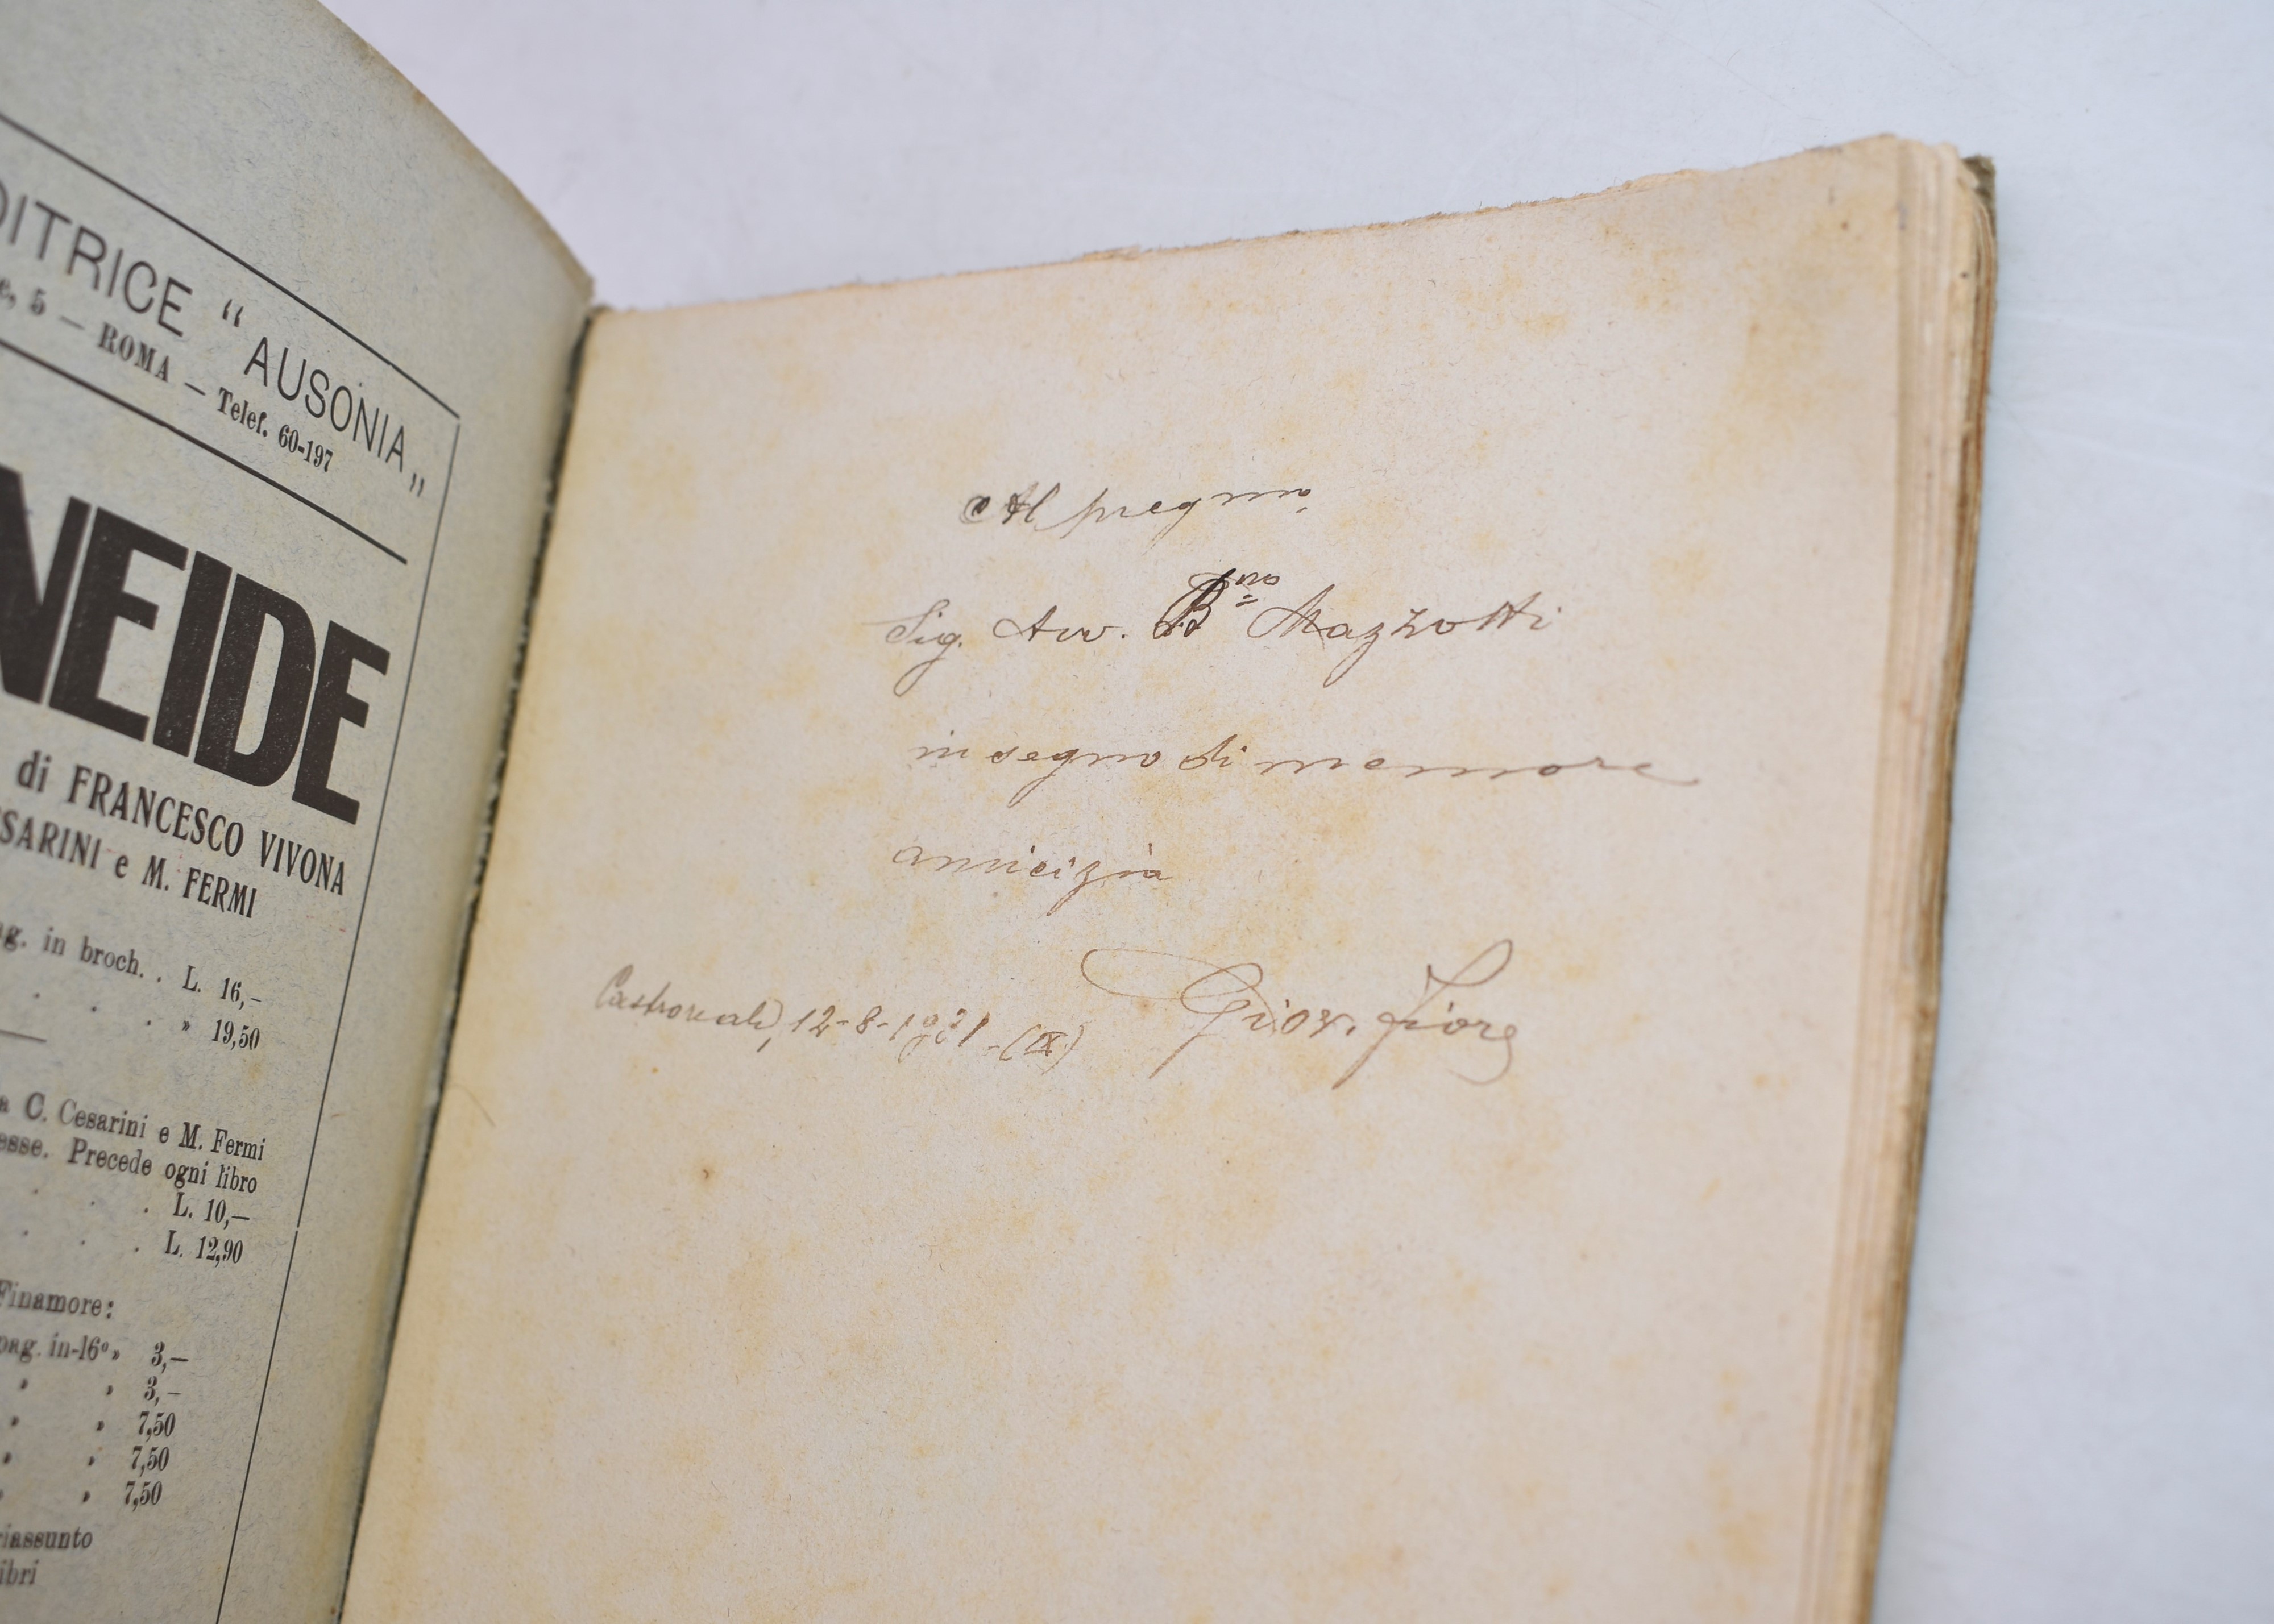 DITRICE “ AUSONIA „
e, 5 — ROMA — Telef. 60-197
NEIDE
di FRANCESCO VIVONA
SARINI e M. FERMI
ag. in broch. . L. 16,–
. . . » 19,50
a C. Cesarini e M. Fermi
esse. Precede ogni libro
. . . L. 10,—
. . . L. 12,90
Finamore:
pag. in-16° » 3,—
» » 3,—
» » 7,50
» » 7,50
» » 7,50
riassunto
ibri
Al pregmo
Sig. Avv. Bne Mazzotti
in segno di memore
amicizia
Castroreale, 12-8-1931-(IX) Giov. Fiore